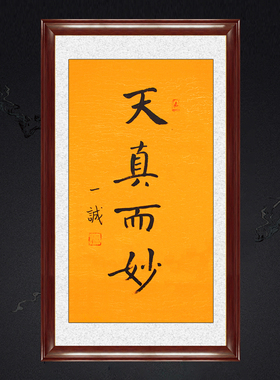 天真而妙
一誠